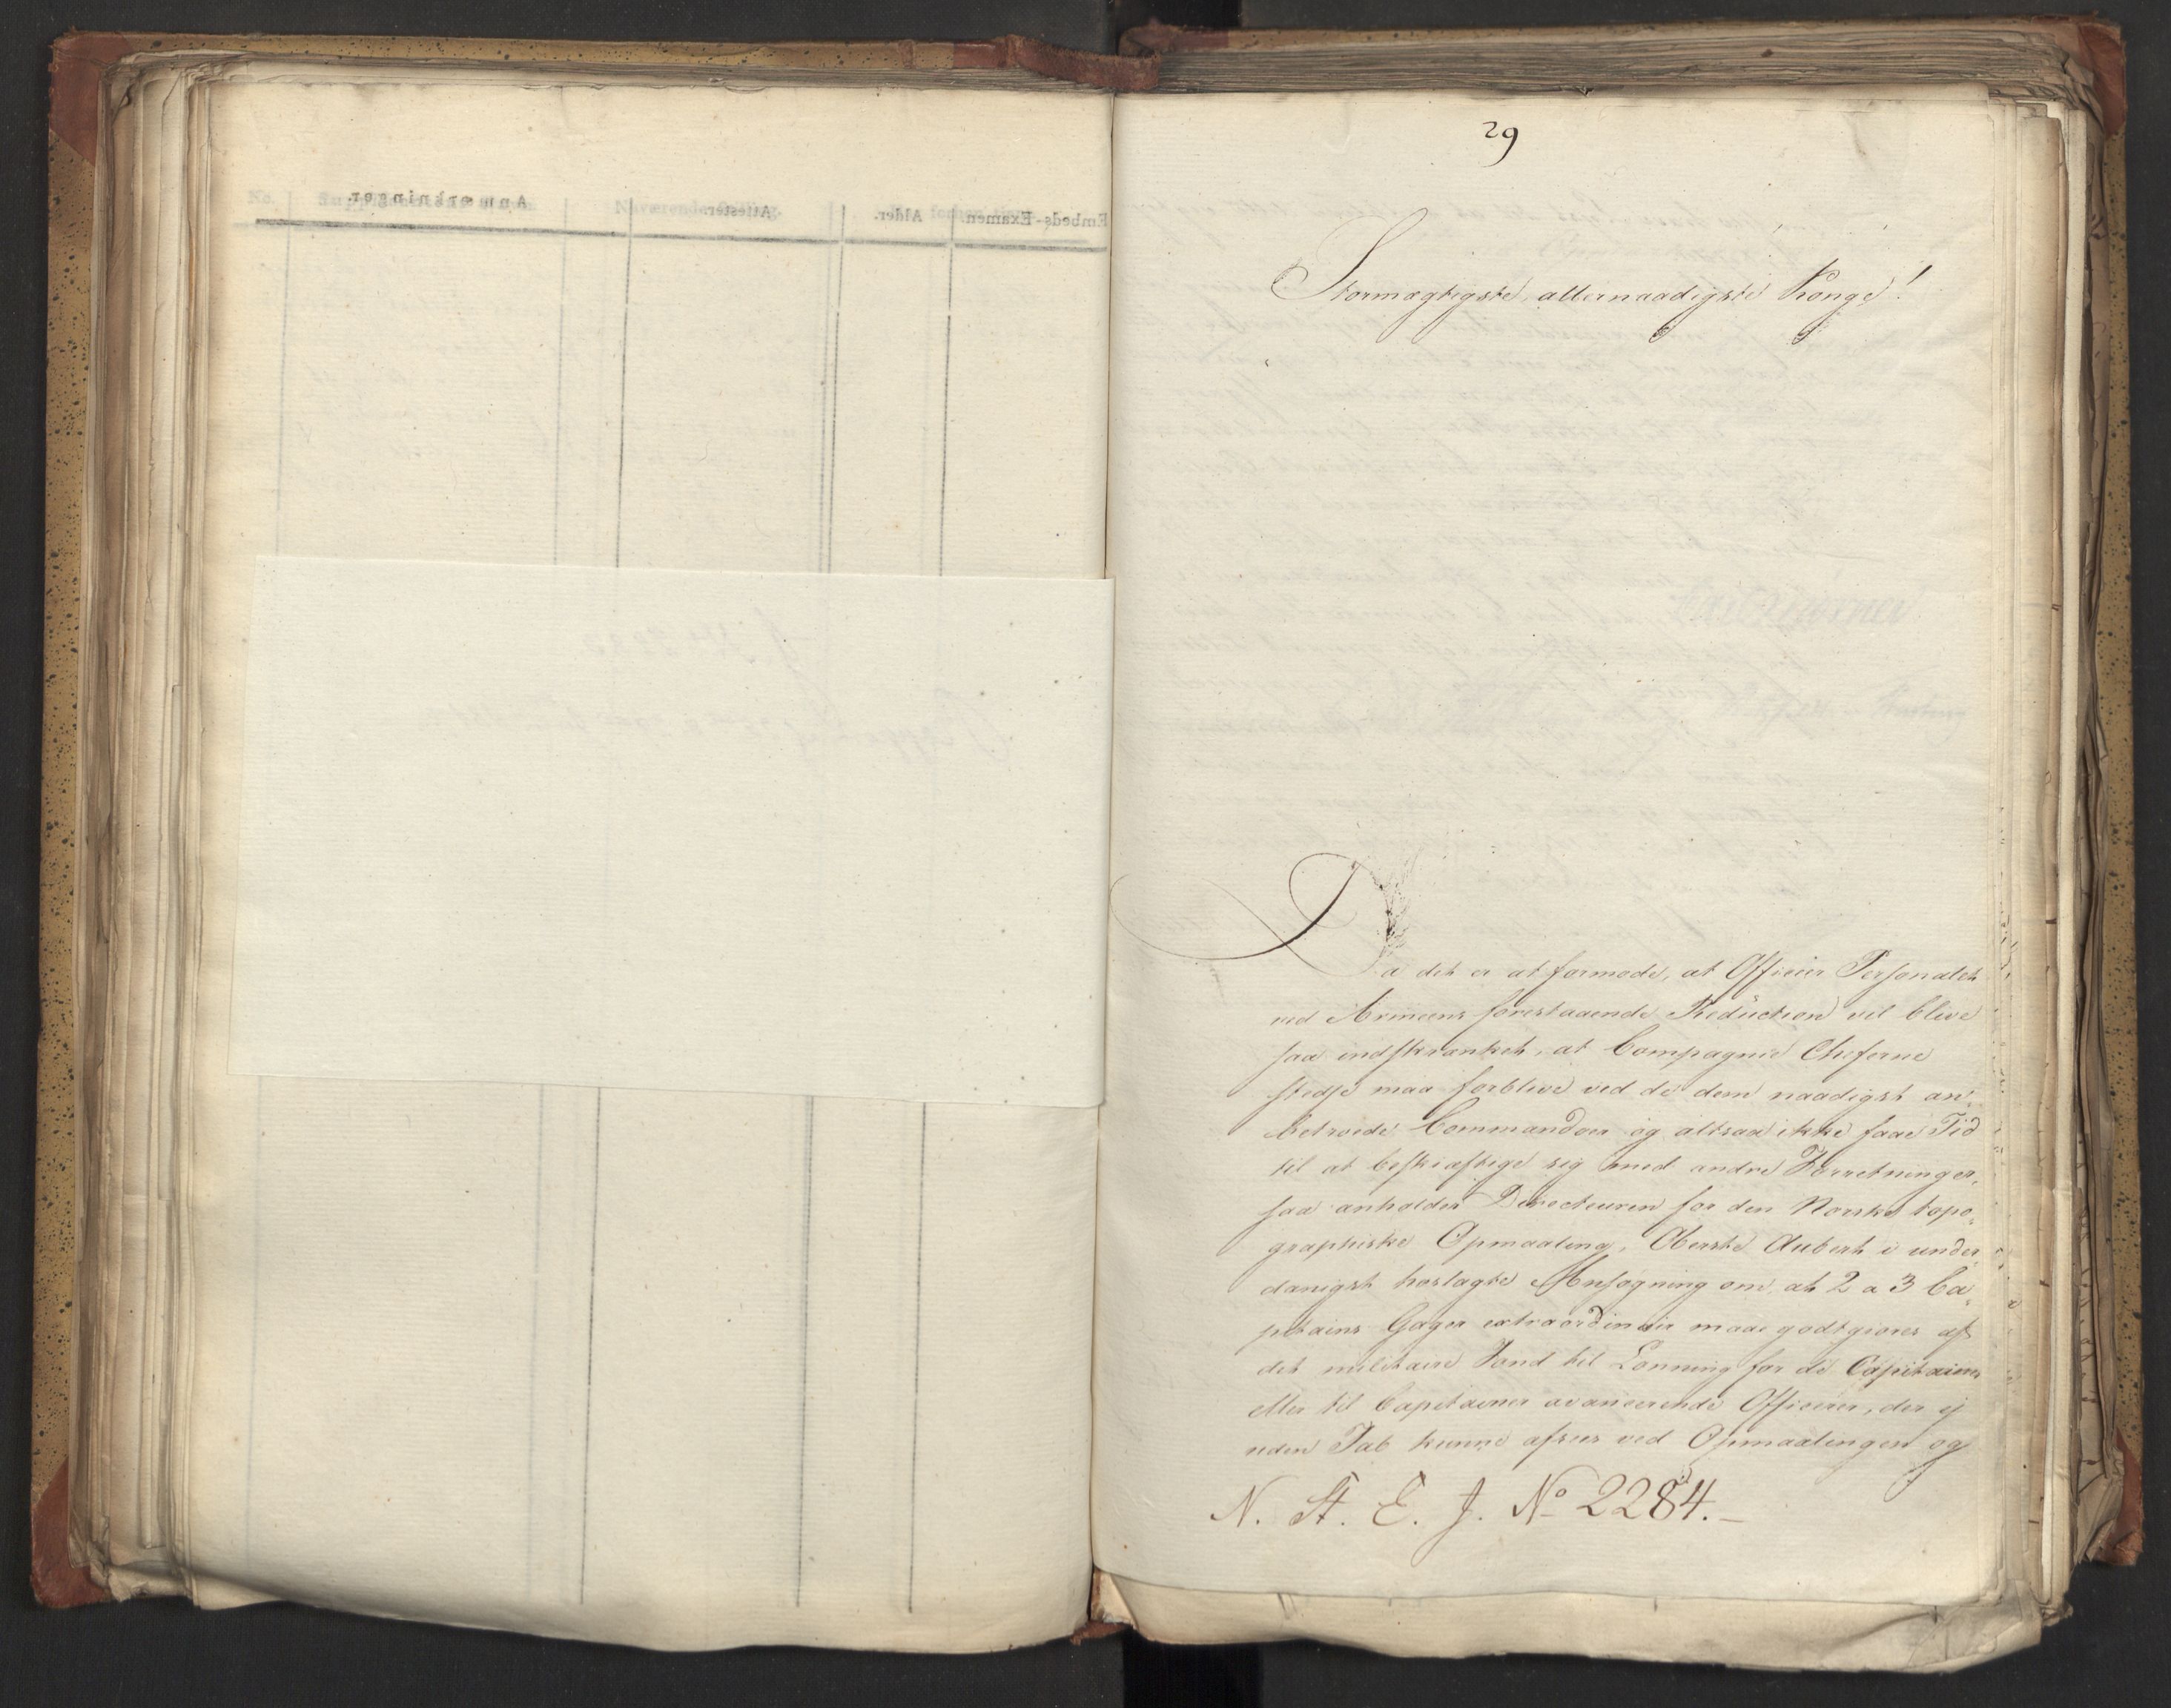 29
Stormægtigste, allernaadigste Konge!
Da det er at formode, at Officier Personalet
ved Armeens forestaaende Reduction vil blive
saa indskrænket, at Compagnie Cheferne
stedse maa forblive ved de dem naadigst an-
betroede Commandoer og altsaa ikke faae Tid
til at beskjæftige sig med andre Forretninger,
saa anholder Directeuren for den Norske topo-
graphiske Opmaaling, Oberste Aubert i under-
danigst hoslagte Ansøgning om, at 2 a 3 Ca-
pitains Gager extraordinair maae godtgiøres af
det militaire Fond til Lønning for de Capitainer
eller til Capitainer avancerende Officierer, der ej
uden Tab kunne afsees ved Opmaalingen og
N. St. E. J. No 2284.-
No.
Anmærkninger.
Nuværende
Attester.
Alder.
Embeds-Examen